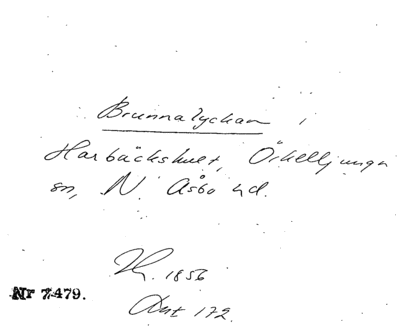 Brunnalyckan i
Harbäckshult, Örkelljunga
sn, N. Åsbo hd.
1856
Nr 7479.
Akt 172.